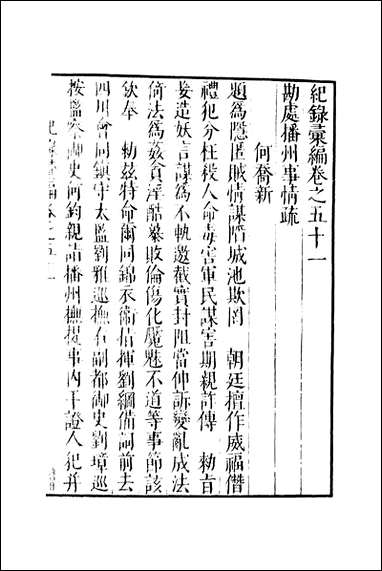 紀錄彙編卷之五十一
勘處播州事情疏
何喬新
題為隱匿賊情謀陷城池欺罔 朝廷擅作威福僭
禮犯分枉殺人命毒害軍民謀害期親許傳 勅旨
妄造妖言謀為不軌邀截實封阻當伸訴變亂成法
倚法為姦貪淫酷暴敗倫傷化魘魅不道等事節該
欽奉 勅茲特命爾同錦衣衛指揮劉綱備詞前去
四川會同鎮守太監劉雅巡撫右副都御史劉璋巡
按監察御史何鈞親詣播州撫提事內干證人犯并